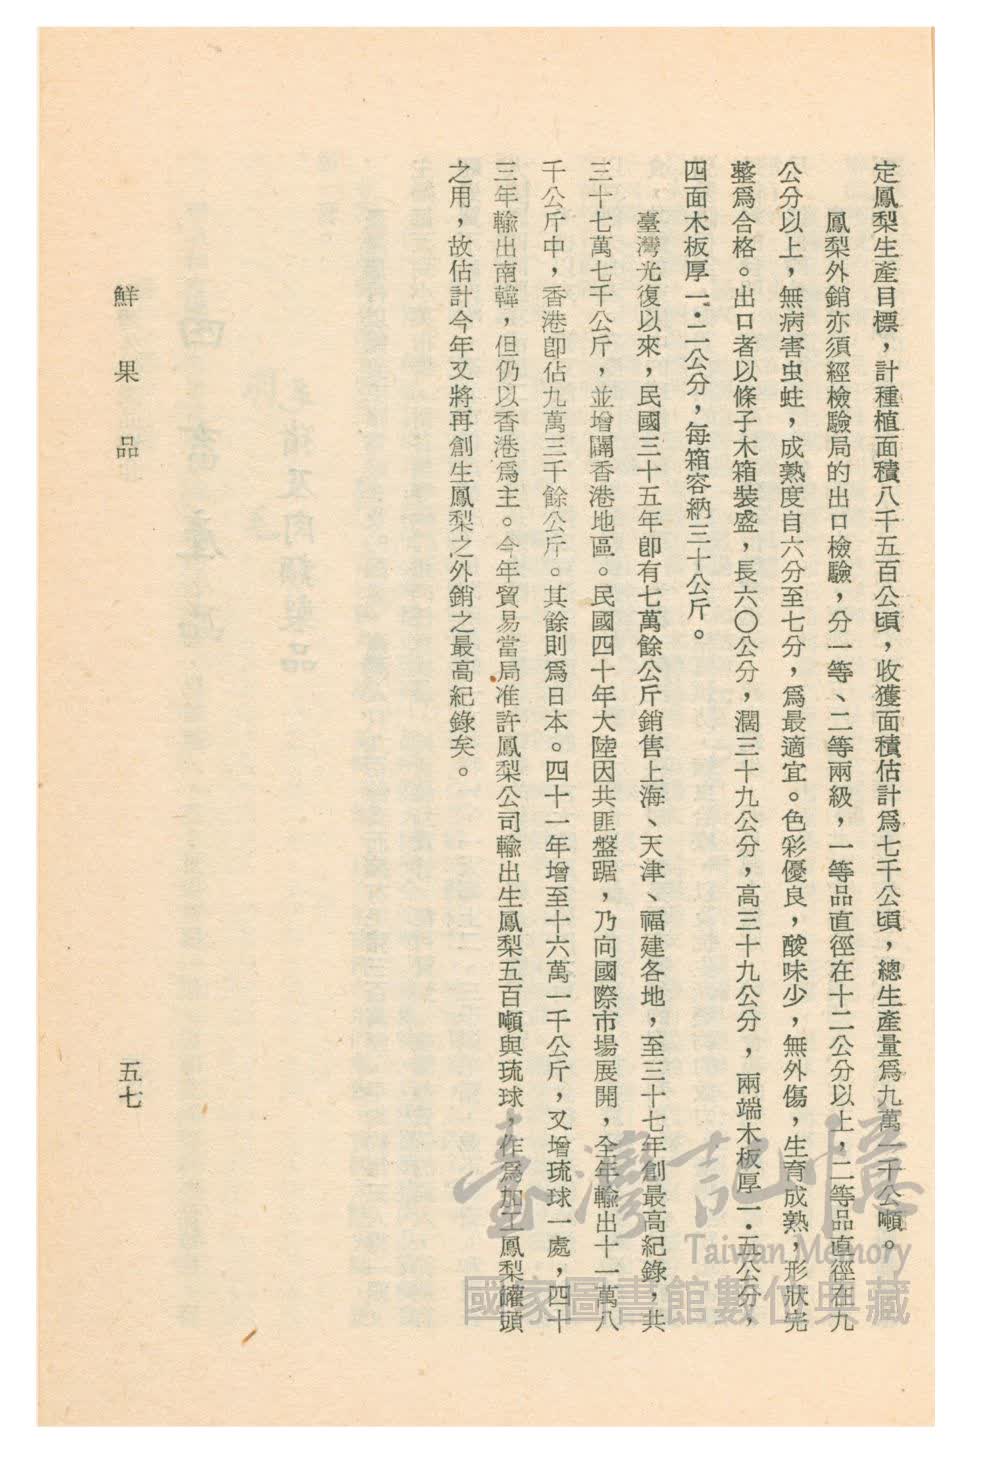 定鳳梨生產目標，計種植面積八千五百公頃，收獲面積估計爲七千公頃，總生產量爲九萬一千公噸。
鳳梨外銷亦須經檢驗局的出口檢驗，分一等、二等兩級，一等品直徑在十二公分以上，二等品直徑在九
公分以上，無病害虫蛀，成熟度自六分至七分，爲最適宜。色彩優良，酸味少，無外傷，生育成熟，形狀完
整爲合格。出口者以條子木箱裝盛，長六〇公分，濶三十九公分，高三十九公分，兩端木板厚一・五公分，
四面木板厚一・二公分，每箱容納三十公斤。
臺灣光復以來，民國三十五年卽有七萬餘公斤銷售上海、天津、福建各地，至三十七年創最高紀錄，共
三十七萬七千公斤，並增闢香港地區。民國四十年大陸因共匪盤踞，乃向國際市場展開，全年輸出十一萬八
千公斤中，香港卽佔九萬三千餘公斤。其餘則爲日本。四十一年增至十六萬一千公斤，又增琉球一處，四十
三年輸出南韓，但仍以香港爲主。今年貿易當局准許鳳梨公司輸出生鳳梨五百噸與琉球，作爲加工鳳梨罐頭
之用，故估計今年又將再創生鳳梨之外銷之最高紀錄矣。
鮮果品
五七
臺灣記憶
Taiwan Memory
國家圖書館數位典藏